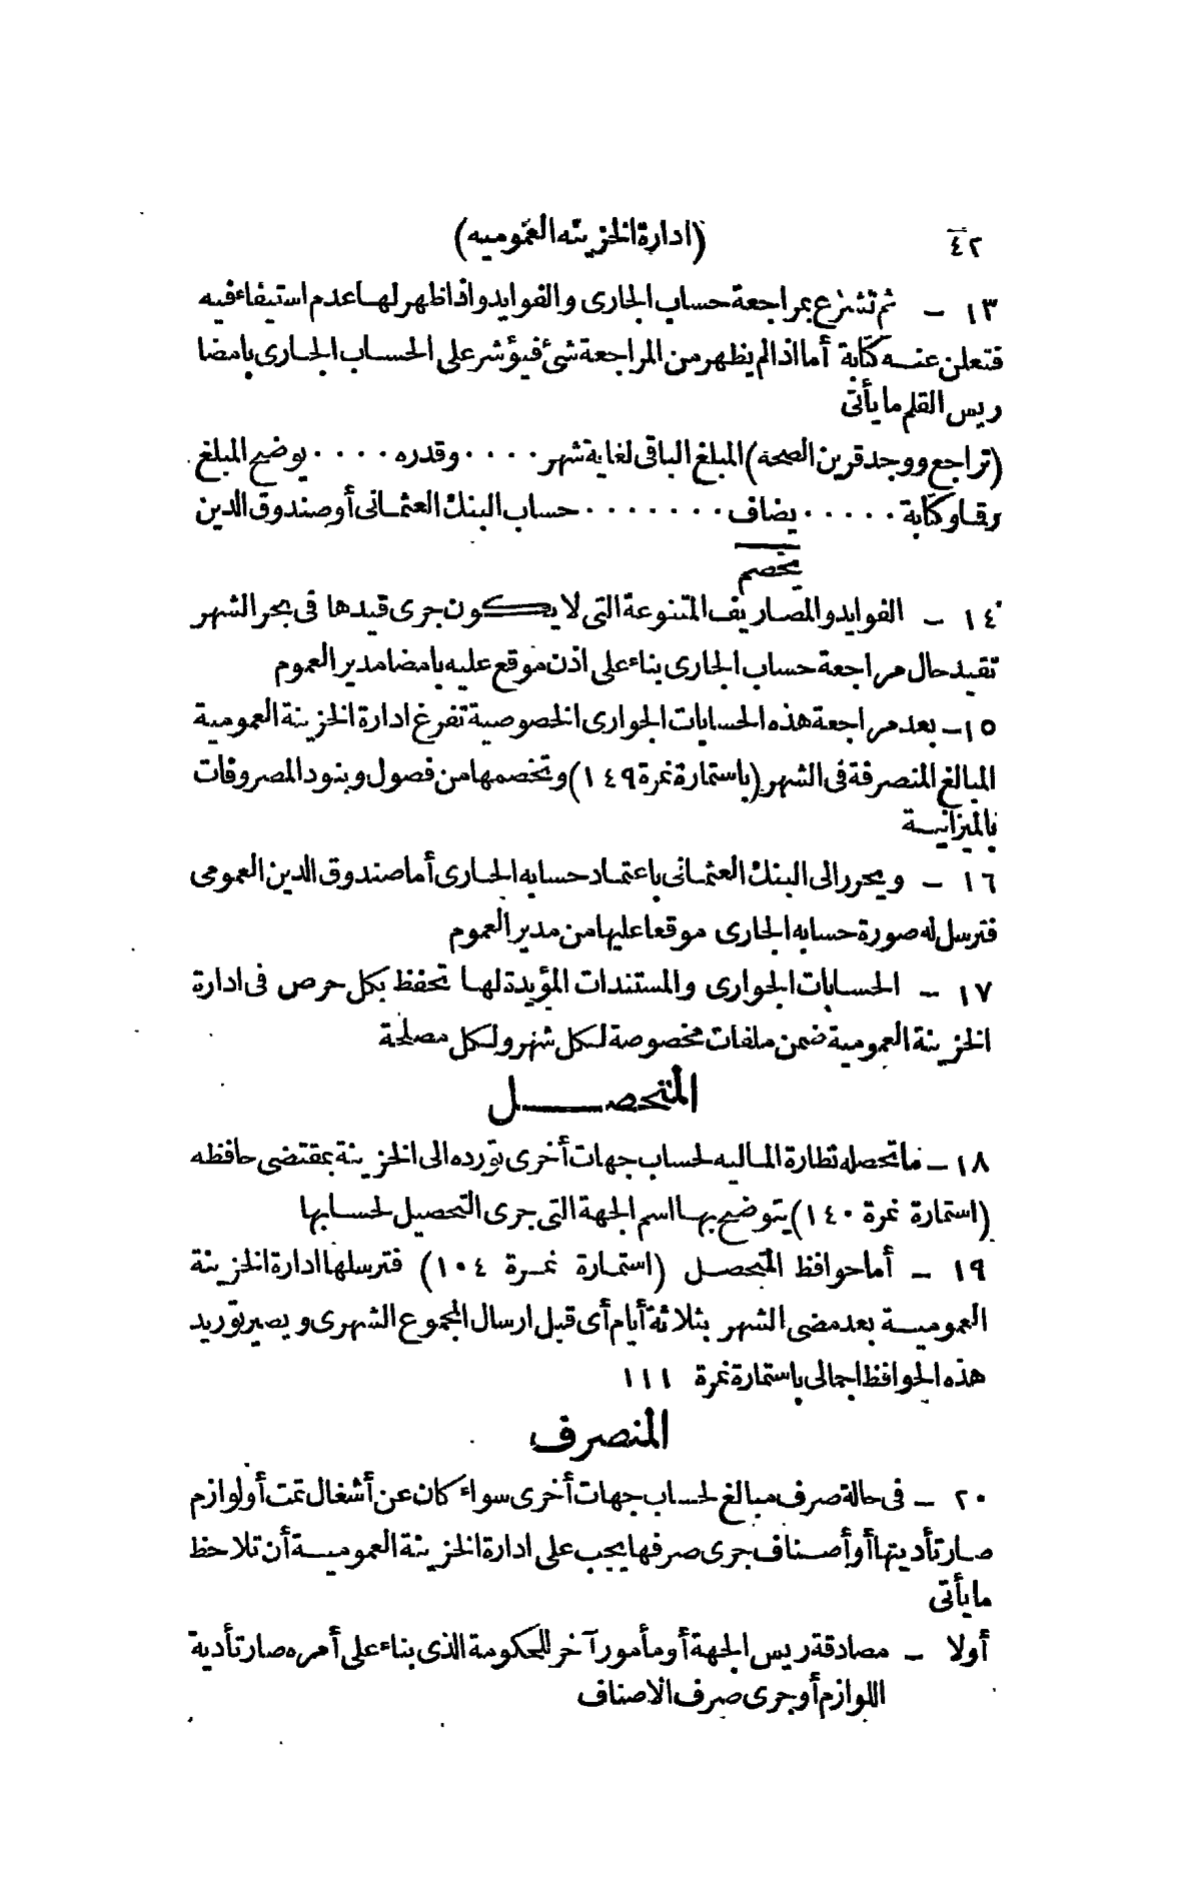 ٤٢
(ادارة الخزينه العموميه)
١٣ – ثم تشرع بمراجعة حساب الجارى والفوايد واذا ظهر لها عدم استيفاء فيه
فتعلن عنه كتابة أما اذا لم يظهر من المراجعة شئ فيؤشر على الحساب الجارى بامضا
ريس القلم ما يأتى
(تراجع ووجد قرين الصحة) المبلغ الباقى لغاية شهر . . . . وقدره . . . . يوضح المبلغ
رقما وكتابة . . . . . يضاف . . . . . . . حساب البنك العثمانى أو صندوق الدين
يخصم
١٤ – الفوايد والمصاريف المتنوعة التى لا يكون جرى قيدها فى بحر الشهر
تقيد حال مراجعة حساب الجارى بناء على اذن موقع عليه بامضا مدير العموم
١٥ – بعد مراجعة هذه الحسابات الجوارى الخصوصية تفرغ ادارة الخزينة العمومية
المبالغ المنصرفة فى الشهر (باستمارة نمرة ١٤٩) وتخصمها من فصول وبنود المصروفات
بالميزانية
١٦ – ويحرر الى البنك العثمانى باعتماد حسابه الجارى أما صندوق الدين العمومى
فترسل له صورة حسابه الجارى موقعا عليها من مدير العموم
١٧ – الحسابات الجوارى والمستندات المؤيدة لها تحفظ بكل حرص فى ادارة
الخزينة العمومية ضمن ملفات مخصوصة لكل شهر ولكل مصلحة
المتحصل
١٨ – ما تحصله نظارة الماليه لحساب جهات أخرى تورده الى الخزينة بمقتضى حافظه
(استمارة نمرة ١٤٠) يتوضح بها اسم الجهة التى جرى التحصيل لحسابها
١٩ – أما حوافظ المتحصل (استمارة نمرة ١٠٤) فترسلها ادارة الخزينة
العمومية بعد مضى الشهر بثلاثة أيام أى قبل ارسال المجموع الشهرى ويصير توريد
هذه الحوافظ اجمالى باستمارة نمرة ١١١
المنصرف
٢٠ – فى حالة صرف مبالغ لحساب جهات أخرى سواء كان عن أشغال تمت أو لوازم
صار تأديتها أو أصناف جرى صرفها يجب على ادارة الخزينة العمومية أن تلاحظ
ما يأتى
أولا – مصادقة ريس الجهة أو مأمور آخر للحكومة الذى بناء على أمره صار تأدية
اللوازم أو جرى صرف الاصناف